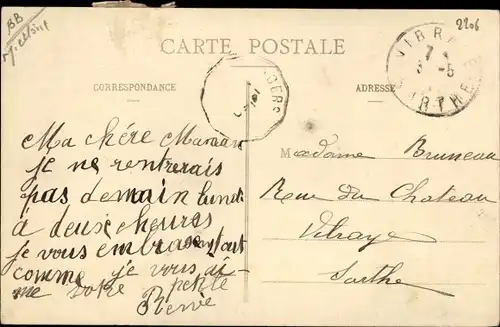 BB
2206
CARTE POSTALE
CORRESPONDANCE
ADRESSE
VIBR
SARTHE
Ma chère Maman
je ne rentrerais
pas demain lundi
à deux heures
je vous embrasse tant
comme je vous ai-
me votre petite
Madame Bruneau
Rue du Chateau
Vibraye
Sarthe